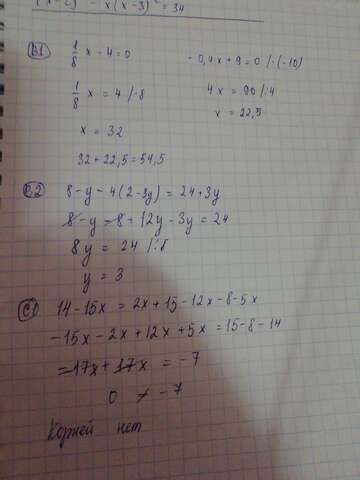 (x-2)² - x(x-3)² = 34
B1
1/8 x - 4 = 0
- 0,4x + 9 = 0 /·(-10)
1/8 x = 4 /·8
4x = 90 /:4
x = 32
x = 22,5
32 + 22,5 = 54,5
B2
8 - y - 4(2 - 3y) = 24 + 3y
8 - y - 8 + 12y - 3y = 24
8y = 24 /:8
y = 3
C1
14 - 15x = 2x + 15 - 12x - 8 - 5x
-15x - 2x + 12x + 5x = 15 - 8 - 14
-17x + 17x = -7
0 ≠ -7
Корней нет